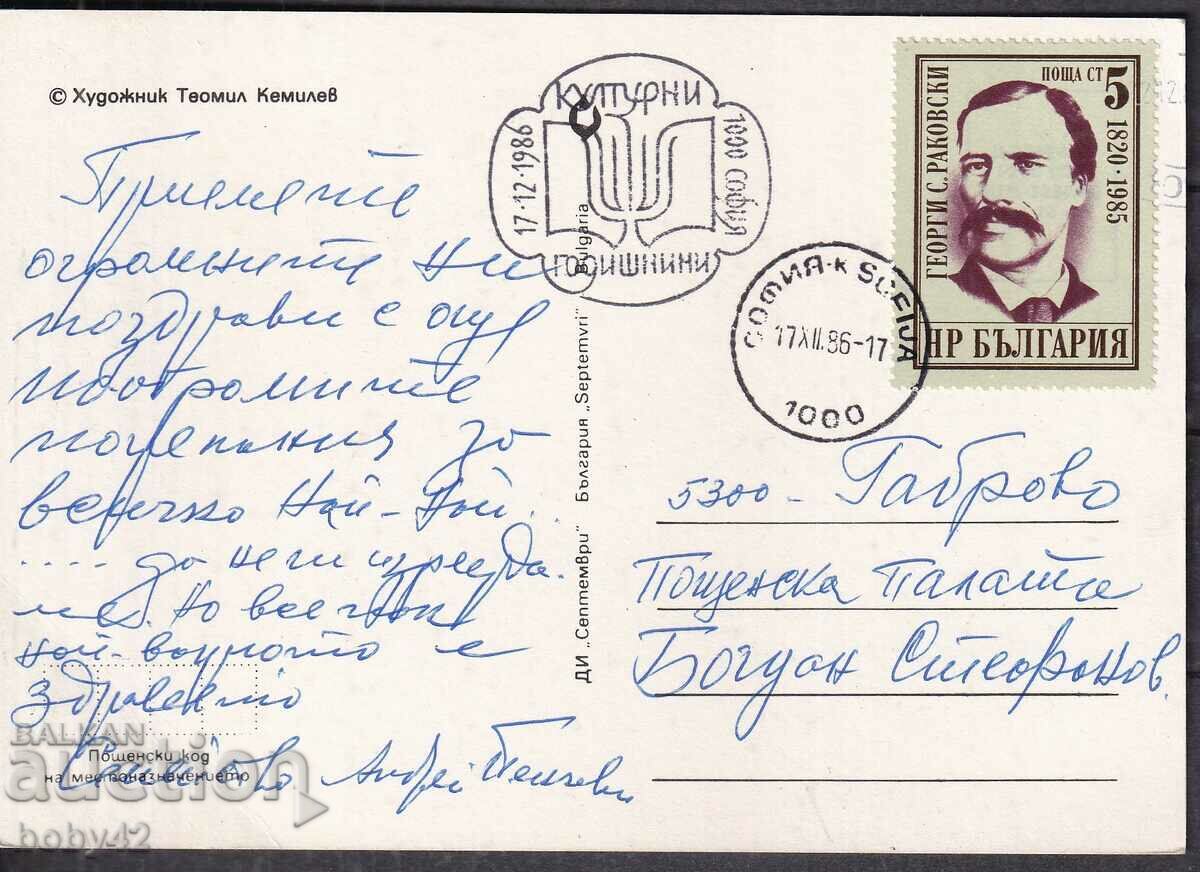 © Художник Теомил Кемилев
Приемете
огромните ни
поздрави с още
по-огромните
пожелания за
всичко най-най..
.... да не ги изрежда-
ме. Но все пак
най-важното е
здравето
Семейство Андрей Пенчеви
Пощенски код
на местоназначението
ДИ „Септември" България „Septemvri" Bulgaria
КУЛТУРНИ
17·12·1986
1000 СОФИЯ
ГОДИШНИНИ
СОФИЯ-К SOFIJA
17XII.86-17
1000
ПОЩА СТ 5
ГЕОРГИ С. РАКОВСКИ
1820·1985
НР БЪЛГАРИЯ
5300 - Габрово
Пощенска палата
Богдан Стефанов
BALKAN
auction
boby42